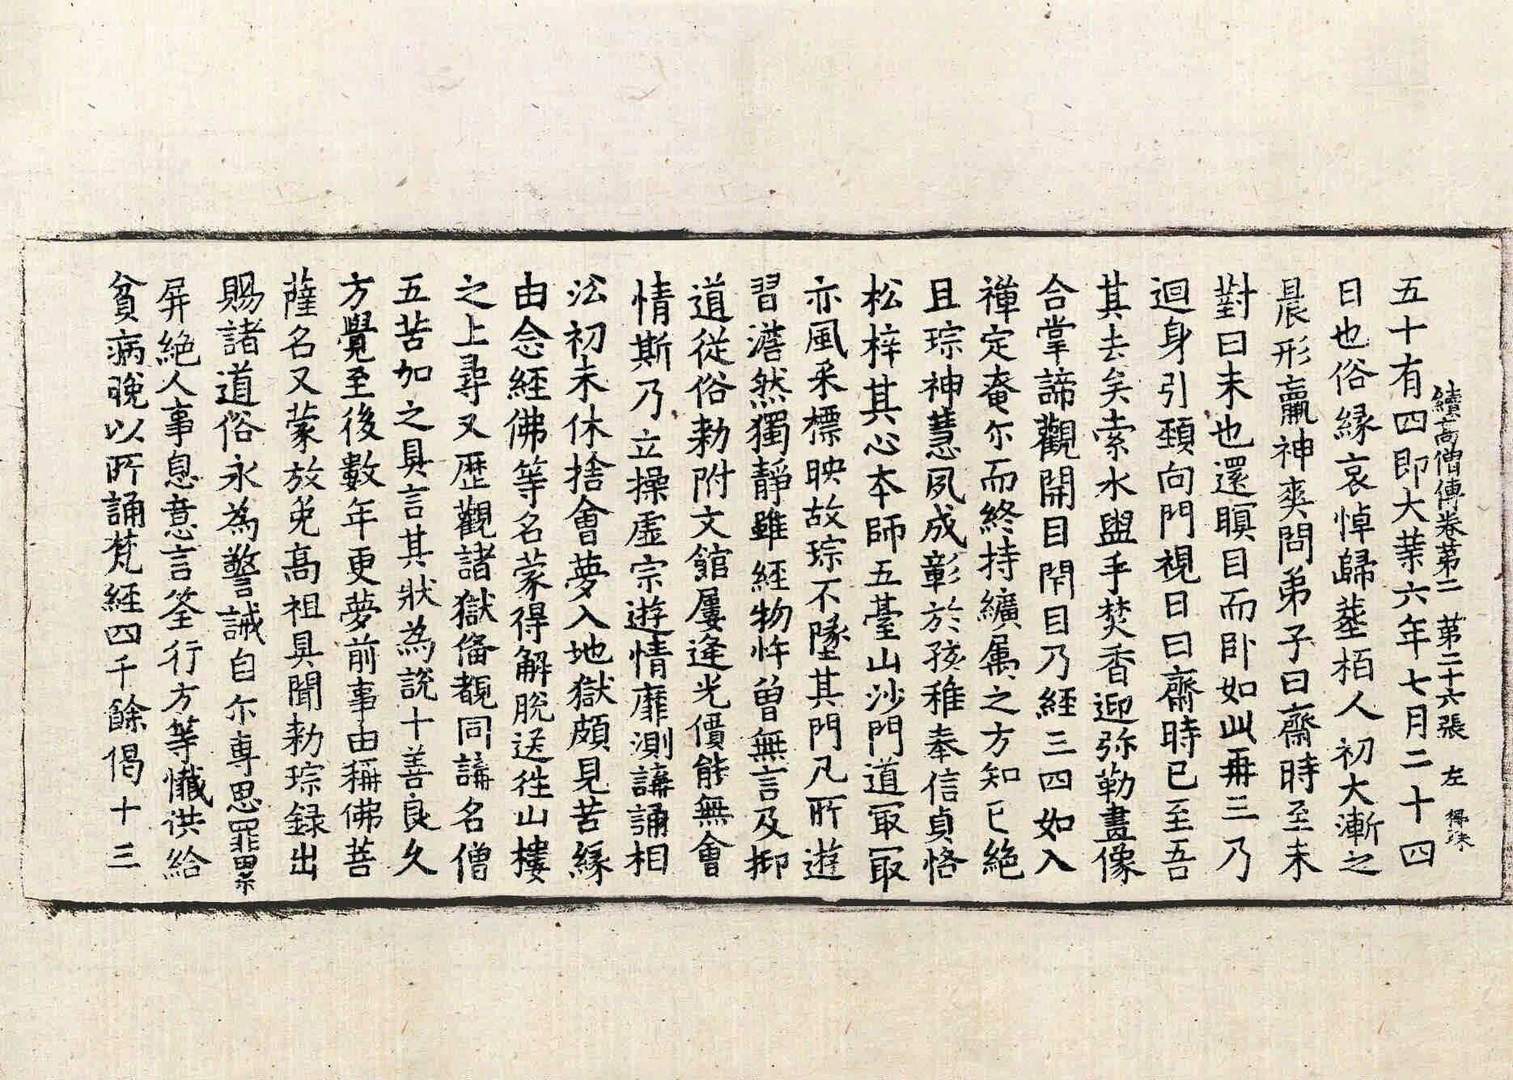 續高僧傳卷第二　第二十六張　左
五十有四即大業六年七月二十四
日也俗緣哀悼歸葬栢人初大漸之
晨形羸神爽問弟子曰齋時至未
對曰未也還瞑目而臥如此再三乃
迴身引頚向門視日曰齋時已至吾
其去矣索水盥手焚香迎弥勒畫像
合掌諦觀開目閇目乃經三四如入
禪定奄尒而終持纊属之方知已絕
且琮神慧夙成彰於孩稚奉信貞恪
松梓其心本師五臺山沙門道冣冣
亦風采標映故琮不墜其門凡所遊
習澹然獨靜雖經物忤曾無言及抑
道從俗勑附文館屢逢光價能無會
情斯乃立操虛宗遊情靡測講誦相
㳒初未休捨會夢入地獄頗見苦緣
由念經佛等名蒙得解脫送往山樓
之上尋又歷觀諸獄俻覩同講名僧
五苦加之具言其狀為說十善良久
方覺至後數年更夢前事由稱佛菩
薩名又蒙放免高祖具聞勑琮録出
賜諸道俗永為警誡自尒專思罪累
屏絕人事息意言筌行方等懺洪給
貧病晚以所誦梵經四千餘偈十三